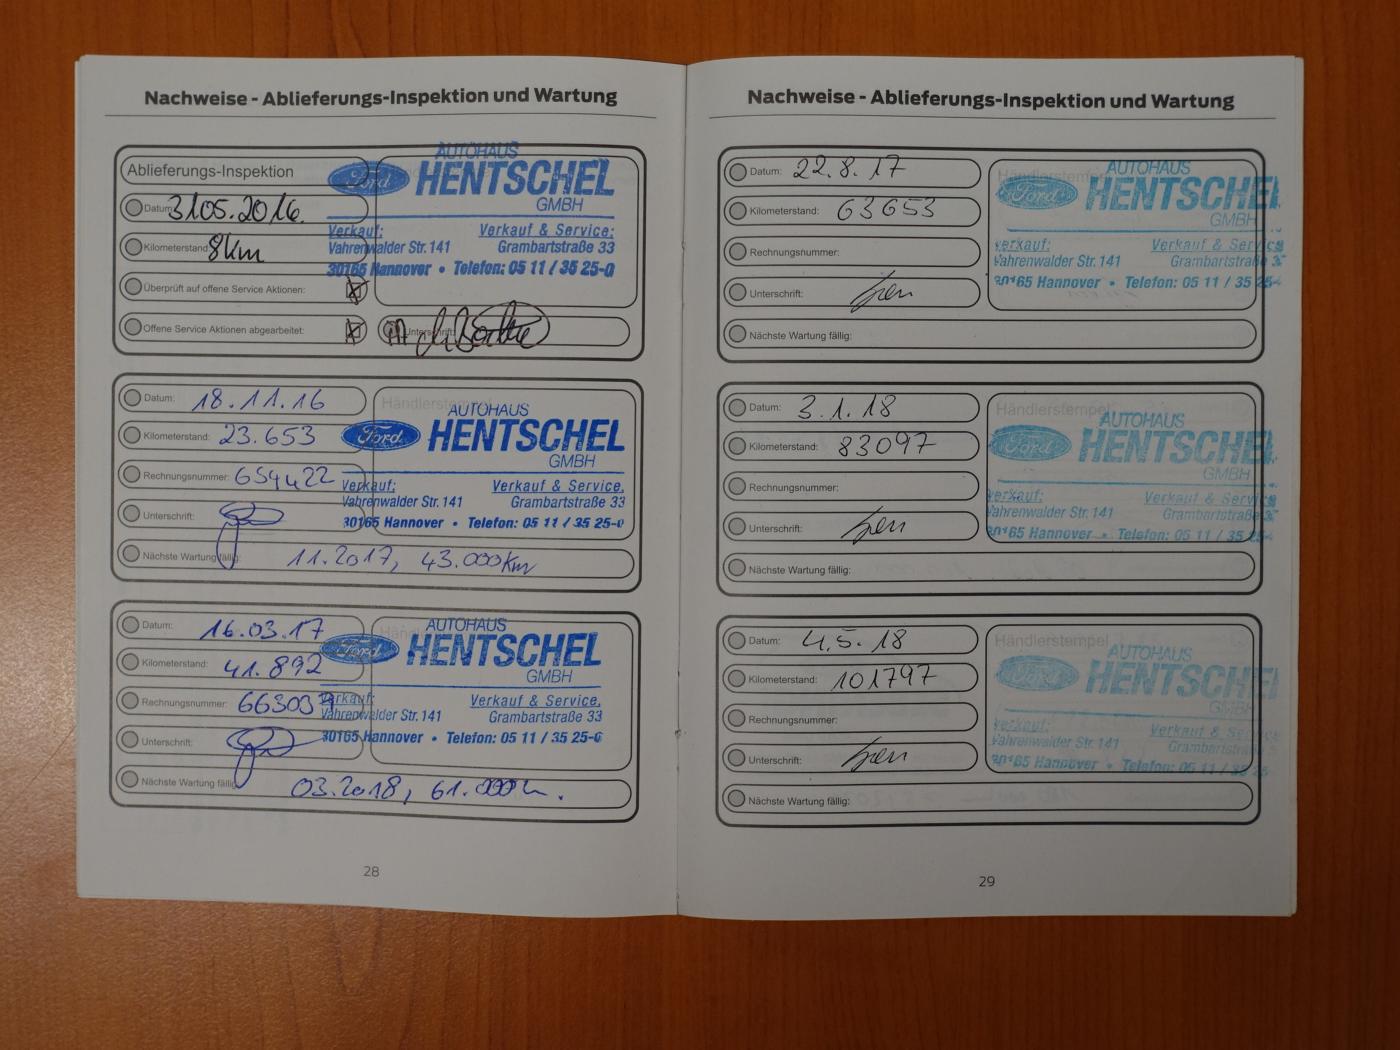 Nachweise - Ablieferungs-Inspektion und Wartung
Ablieferungs-Inspektion
Datum: 31.05.2016
Kilometerstand: 8km
Überprüft auf offene Service Aktionen:
Offene Service Aktionen abgearbeitet:
Unterschrift:
AUTOHAUS
Ford HENTSCHEL
GMBH
Verkauf: Verkauf & Service:
Vahrenwalder Str. 141 Grambartstraße 33
30165 Hannover • Telefon: 05 11 / 35 25-0
Datum: 18.11.16
Kilometerstand: 23.653
Rechnungsnummer: 654422
Unterschrift:
Nächste Wartung fällig: 11.2017, 43.000km
Händlerstempel
AUTOHAUS
Ford HENTSCHEL
GMBH
Verkauf: Verkauf & Service.
Vahrenwalder Str. 141 Grambartstraße 33
30165 Hannover • Telefon: 05 11 / 35 25-0
Datum: 16.03.17
Kilometerstand: 41.892
Rechnungsnummer: 663039
Unterschrift:
Nächste Wartung fällig: 03.2018, 61.000
AUTOHAUS
Ford HENTSCHEL
GMBH
Verkauf: Verkauf & Service.
Vahrenwalder Str. 141 Grambartstraße 33
30165 Hannover • Telefon: 05 11 / 35 25-0
28
Nachweise - Ablieferungs-Inspektion und Wartung
Datum: 22.8.17
Kilometerstand: 63653
Rechnungsnummer:
Unterschrift:
Nächste Wartung fällig:
Händlerstempel
AUTOHAUS
Ford HENTSCHEL
GMBH
Verkauf: Verkauf & Service
Vahrenwalder Str. 141 Grambartstraße 3
30165 Hannover • Telefon: 05 11 / 35 25-
Datum: 3.1.18
Kilometerstand: 83097
Rechnungsnummer:
Unterschrift:
Nächste Wartung fällig:
Händlerstempel
AUTOHAUS
Ford HENTSCHEL
GMBH
Verkauf: Verkauf & Service
Vahrenwalder Str. 141 Grambartstraße 3
30165 Hannover • Telefon: 05 11 / 35 25-
Datum: 4.5.18
Kilometerstand: 101797
Rechnungsnummer:
Unterschrift:
Nächste Wartung fällig:
Händlerstempel
AUTOHAUS
Ford HENTSCHEL
GMBH
Verkauf: Verkauf & Service
Vahrenwalder Str. 141 Grambartstraße
30165 Hannover • Telefon: 05 11 / 35 25
29